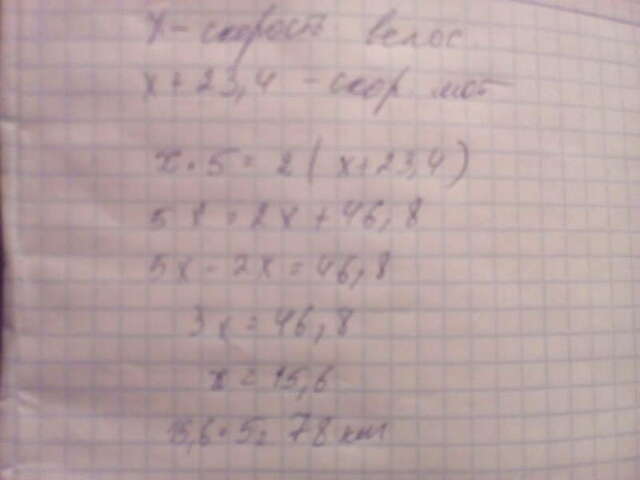 x - скорост велос
x + 23,4 - скор мот
x · 5 = 2 ( x + 23,4 )
5x = 2x + 46,8
5x - 2x = 46,8
3x = 46,8
x = 15,6
15,6 · 5 = 78 км